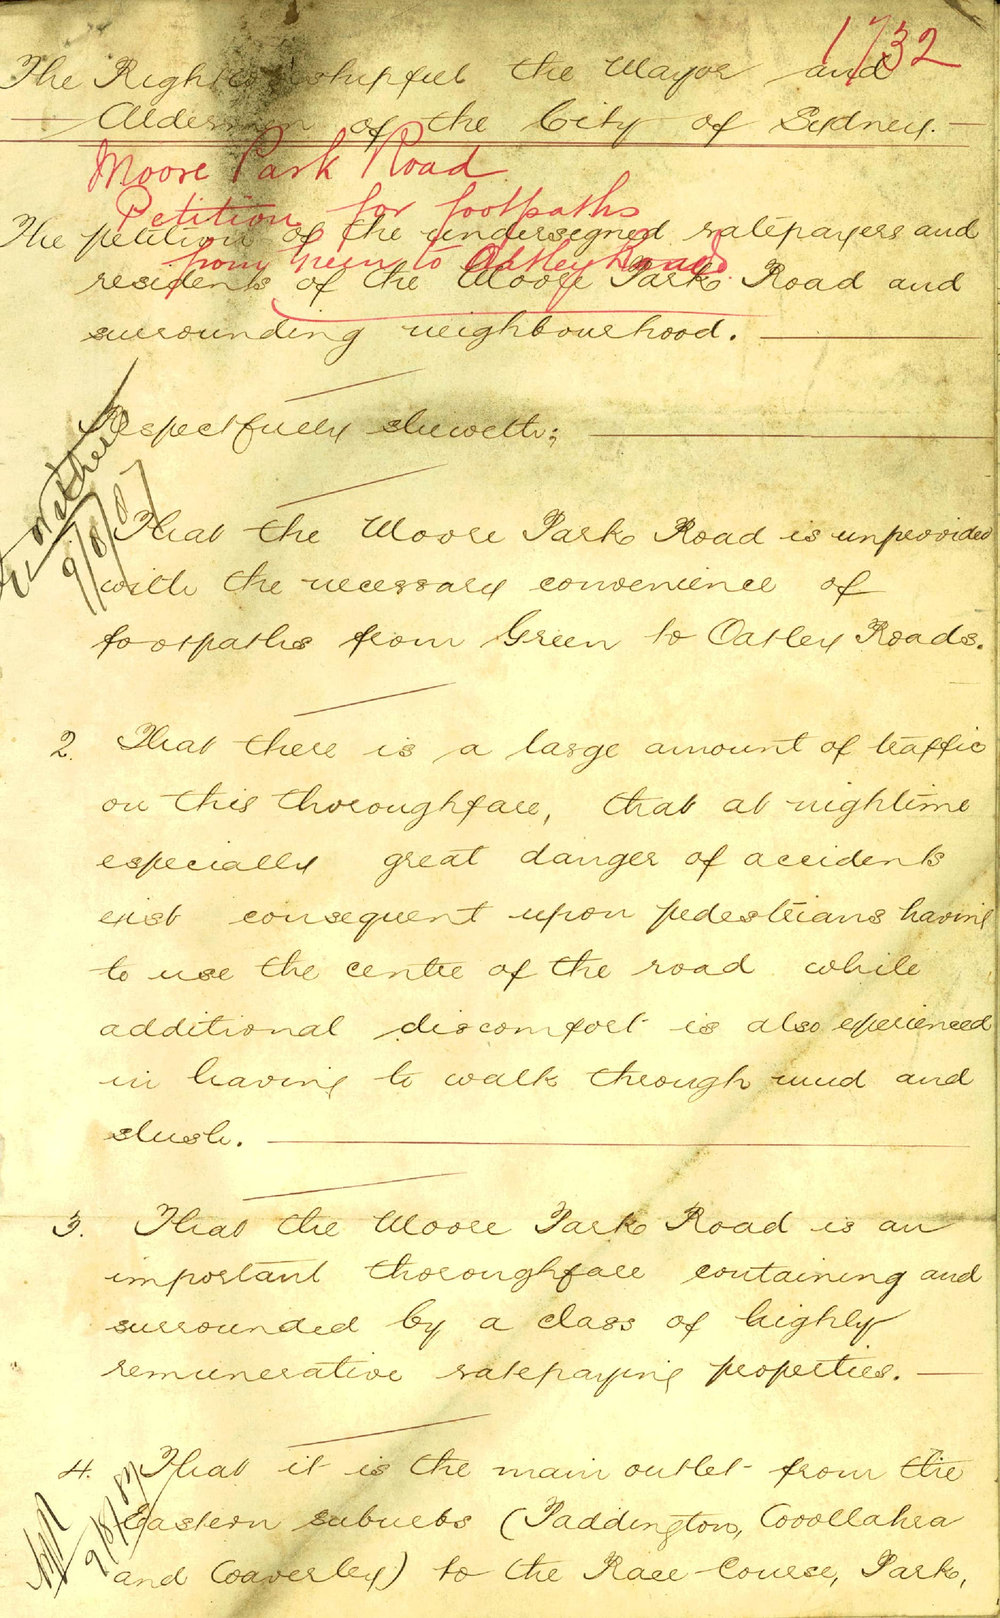 1732
The Right Worshipful the Mayor and
Aldermen of the City of Sydney.
Moore Park Road
Petition for footpaths
from Green to Oatley Roads.
The petition of the undersigned ratepayers and
residents of the Moore Park Road and
surrounding neighbourhood.
Respectfully sheweth;
9/8/87
That the Moore Park Road is unprovided
with the necessary convenience of
footpaths from Green to Oatley Roads.
2. That there is a large amount of traffic
on this thoroughfare, that at nightime
especially great danger of accidents
exist consequent upon pedestrians having
to use the centre of the road while
additional discomfort is also experienced
in having to walk through mud and
slush.
3. That the Moore Park Road is an
important thoroughfare containing and
surrounded by a class of highly
remunerative ratepaying properties.
4. That it is the main outlet from the
Eastern suburbs (Paddington, Woollahra
and Waverley) to the Race Course, Park,
9/8/87